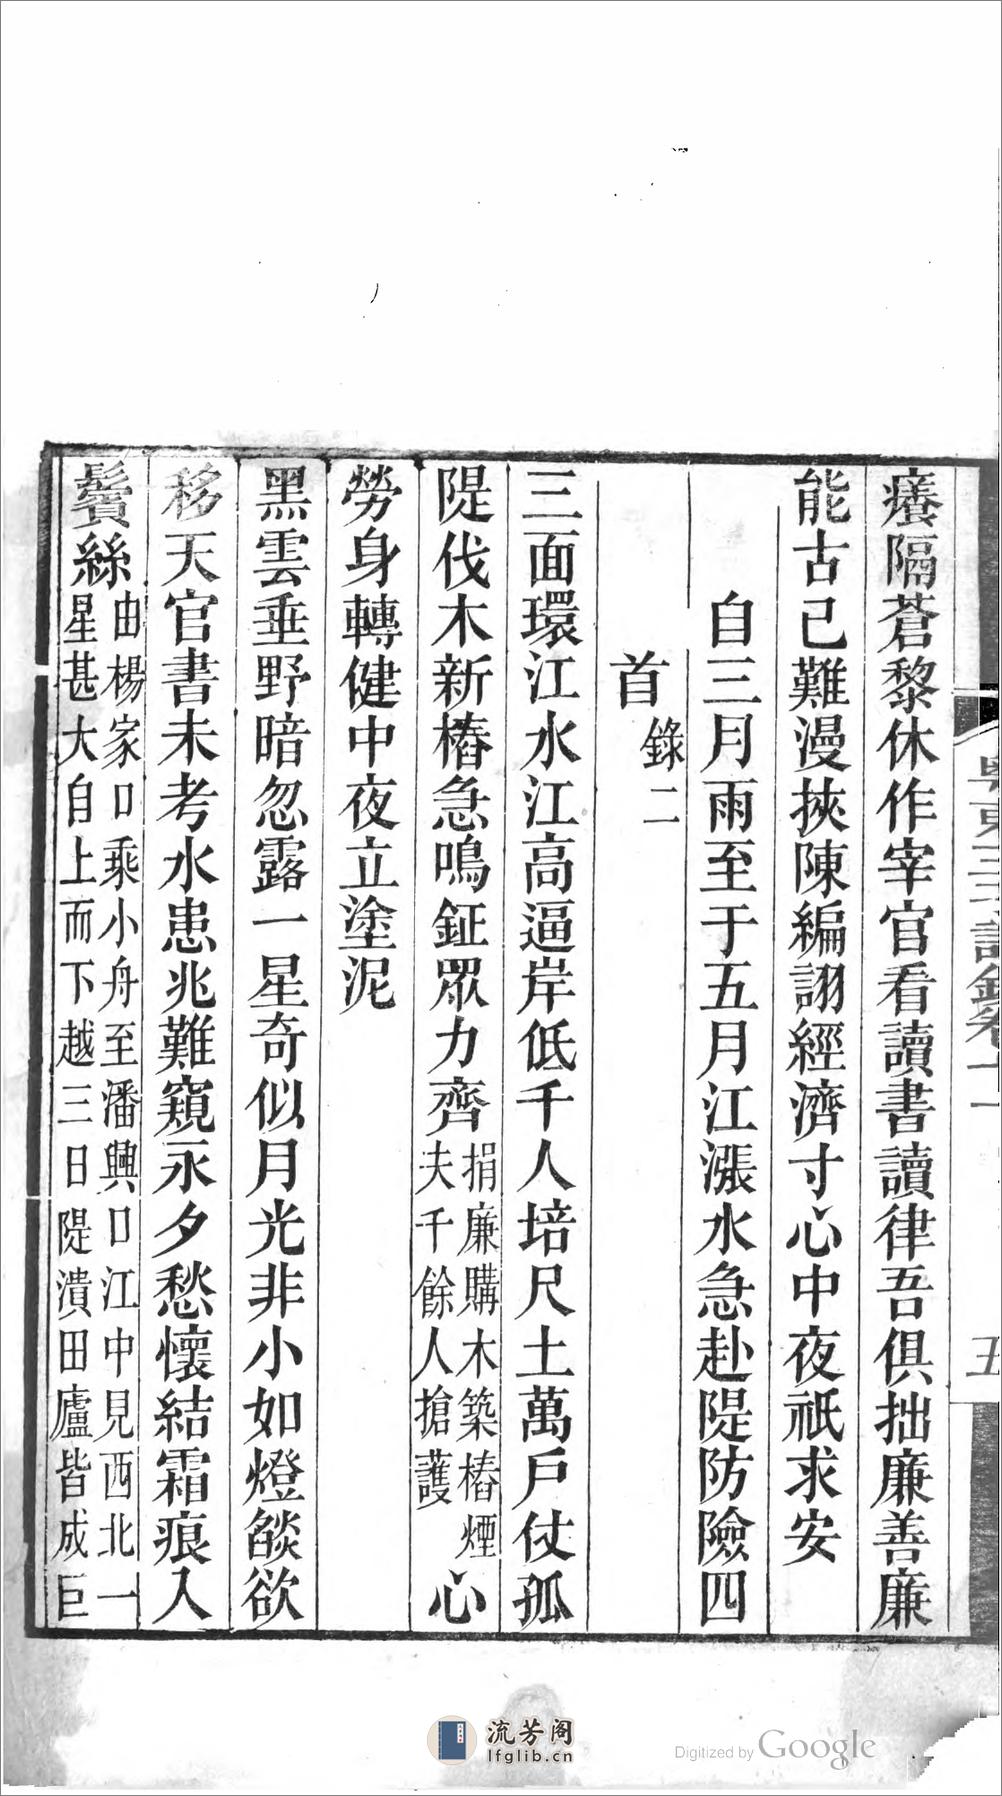 癢隔蒼黎休作宰官看讀書讀律吾俱拙廉善廉
能古己難漫挾陳編詡經濟寸心中夜祇求安
自三月雨至于五月江漲水急赴隄防險四
首錄二
三面環江水江高逼岸低千人培尺土萬戶仗孤
隄伐木新樁急鳴鉦眾力齊捐廉購木築樁煙夫千餘人搶護心
勞身轉健中夜立塗泥
黑雲垂野暗忽露一星奇似月光非小如燈燄欲
移天官書未考水患兆難窺永夕愁懷結霜痕入
鬢絲由楊家口乘小舟至潘興口江中見西北一星甚大自上而下越三日隄潰田廬皆成巨
五
流芳阁
lfglib.cn
Digitized by Google